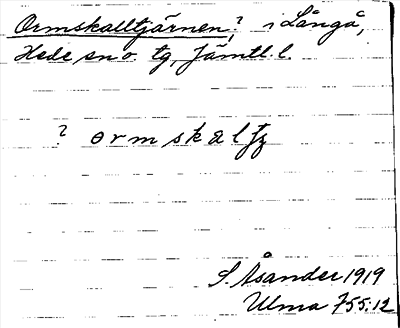 Ormskalltjärnen,? i Långå,
Hede sn o. tg, Jämtl. l.
? ormskal
S. Åsander 1919
Ulma 755:12